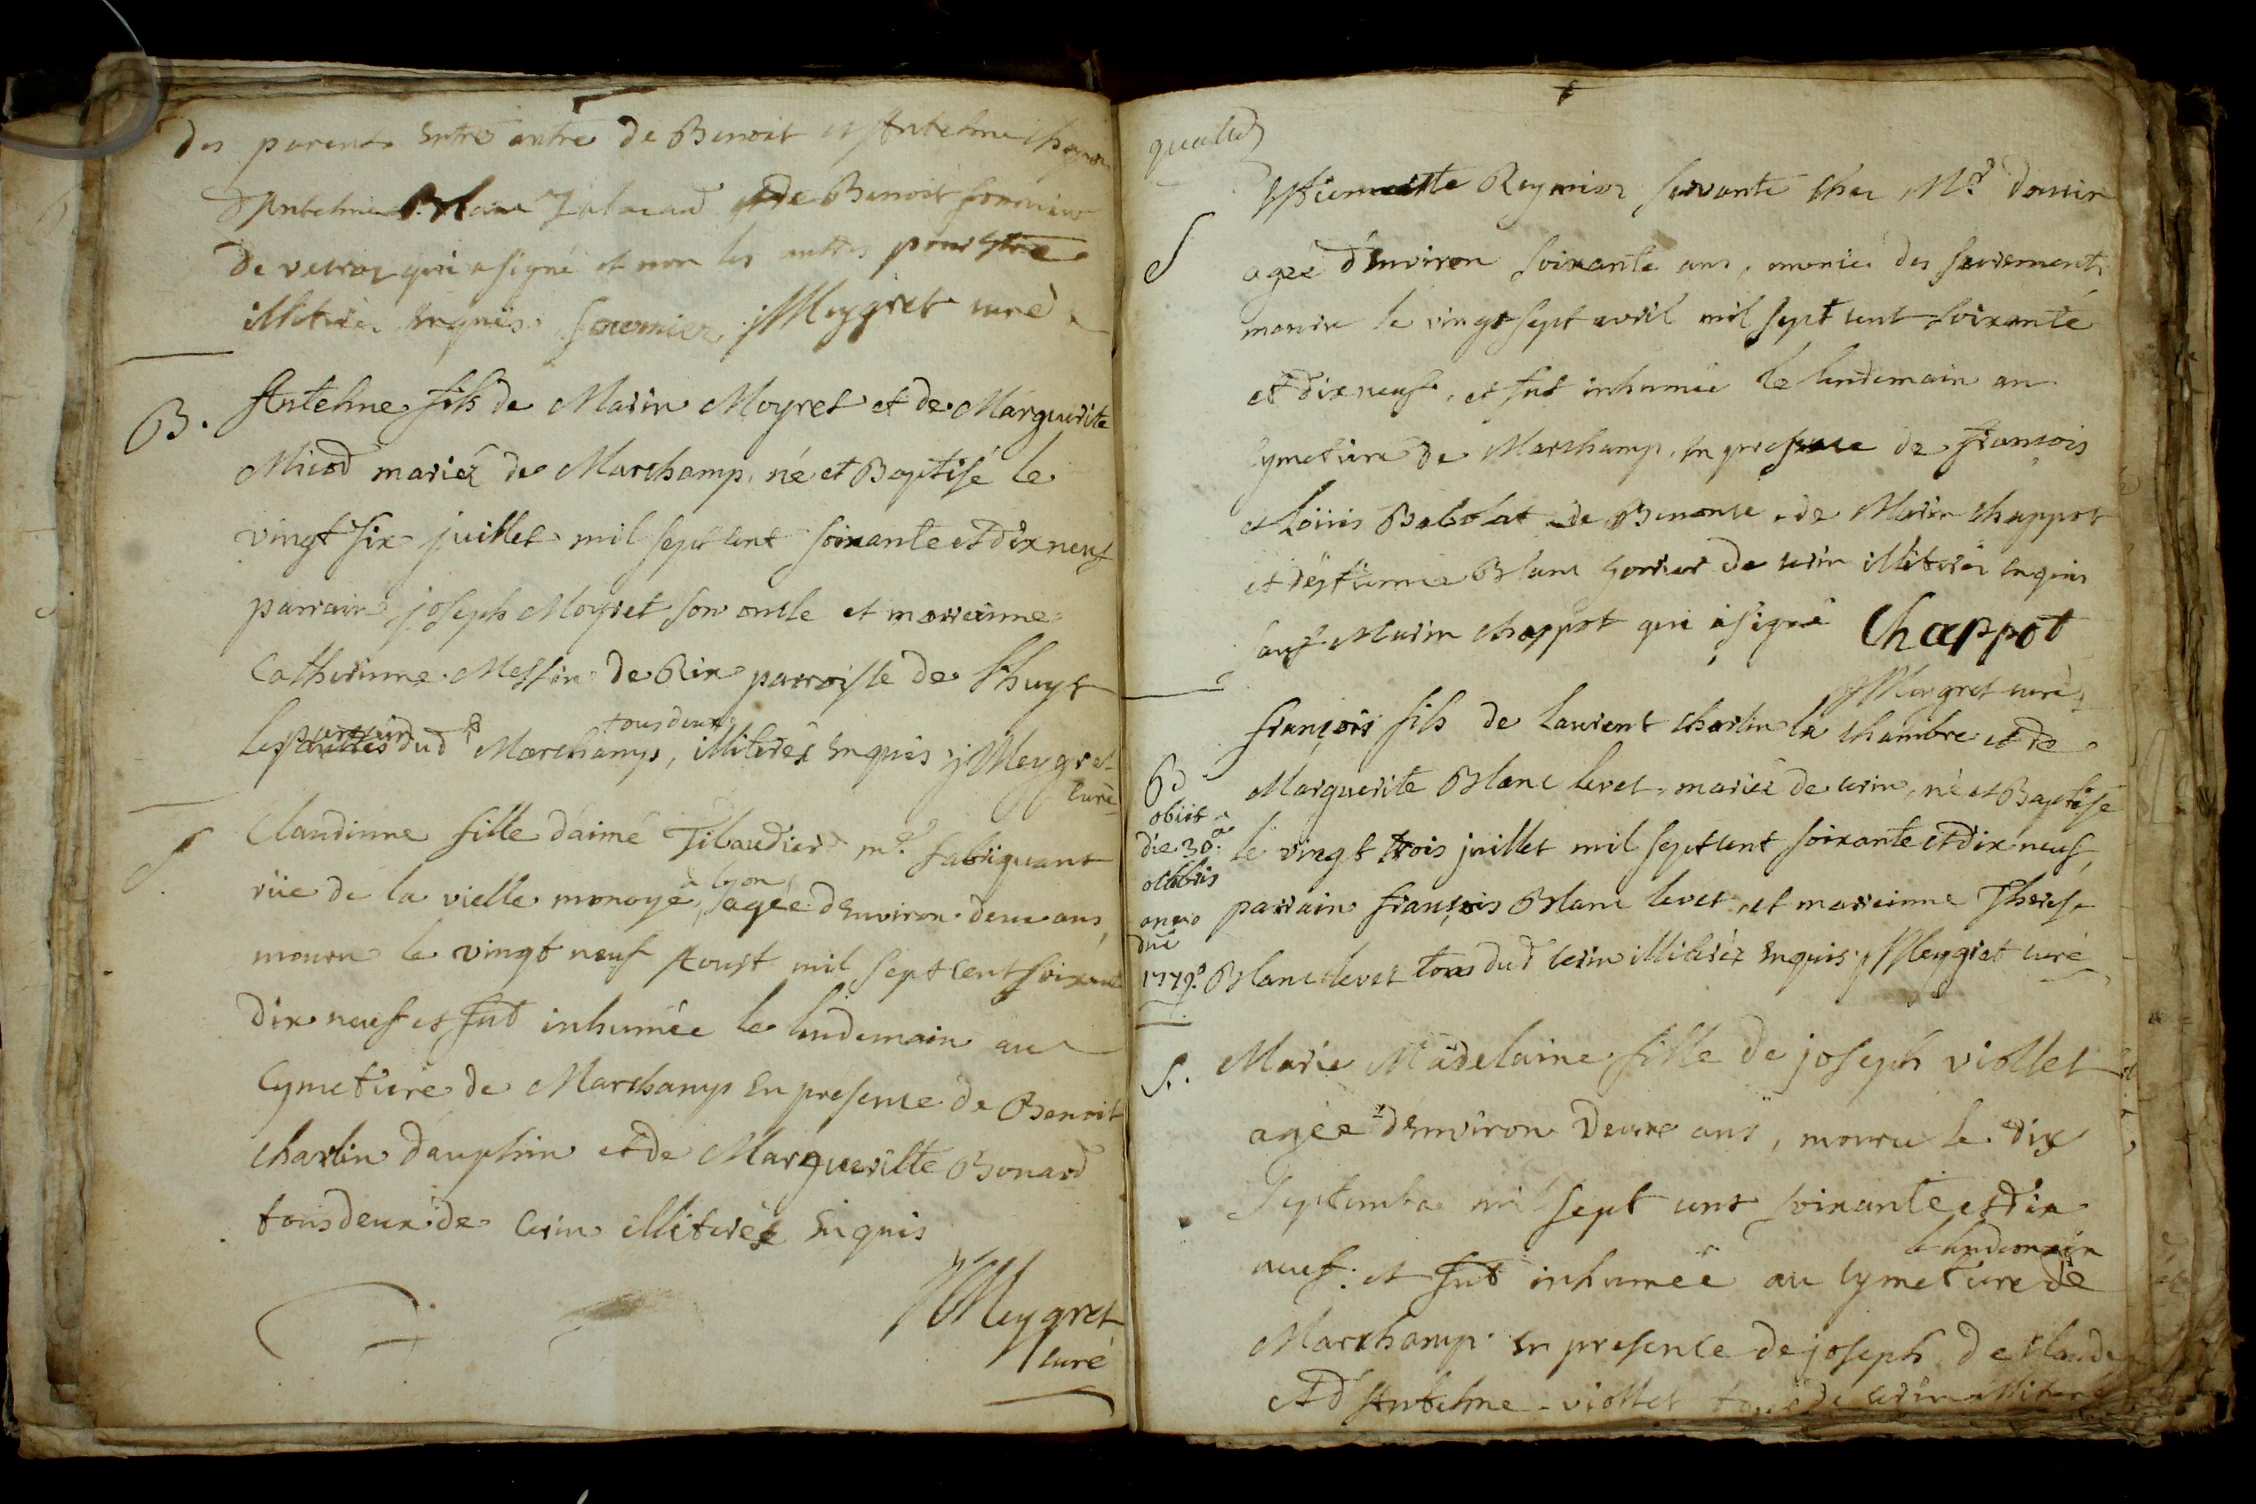 des parents entre autre de Benoit et Antelme
d'Antelme Blanc et de Benoit fournier
de qui a signé et non les autres pour être
illiterés enquis. fournier. Meygret curé
B. Antelme fils de Marin Moyret et de Marguerite
Micod mariéz de Marchamp, né et Baptisé le
vingt six juillet mil sept cent soixante et dix neuf
parrain joseph Moyret son oncle et marreinne
Catherinne Messin de Rix parroisse de Lhuys
le parrain dud Marchamp, tous deux illiterés enquis Meygret
curé
S Claudinne fille d'aimé Tibaudier md. fabriquant
rüe de la vielle monoye, a lyon, agée d'environ deux ans,
mouru le vingt neuf Aoust mil sept cent soixante
dix neuf et fut inhumée le lendemain au
Cymetiere de Marchamp en presence de Benoit
Charlin dauphin et de Margueritte Bonard
tous deux de Cerin illiterés enquis
Meygret
curé
quatre
S Reynier servante chez Mr. douvin
agée d'environ soixante ans, munie des sacrements
mouru le vingt sept avril mil sept cent soixante
et dix neuf, et fut inhumée le lendemain au
Cymetiere de Marchamp, en presence de françois
et Loüis Babolat de Benonce, de Marin chappot
et d'estienne Blanc de cerin illiterés enquis
sauf Marin chappot qui a signé Chappot
Meygret curé
B françois fils de Laurent Charlin la chambre et de
Marguerite Blanc levet, mariéz de cerin, né et Baptisé
le vingt trois juillet mil sept cent soixante et dix neuf,
parrain françois Blanc levet, et marreinne Therese
Blanc levet tous dud Cerin illiteréz enquis Meygret curé
obiit
die 30.a
octobris
anno
dni
1779.
S. Marie Madelaine fille de joseph viollet
agée d'environ deux ans, mouru le dix
Septembre mil sept cent soixante et dix
neuf: et fut inhumée le lendemain au Cymetiere de
Marchamp en presence de joseph de Claude
et d'Antelme viollet tous de cerin illiterés